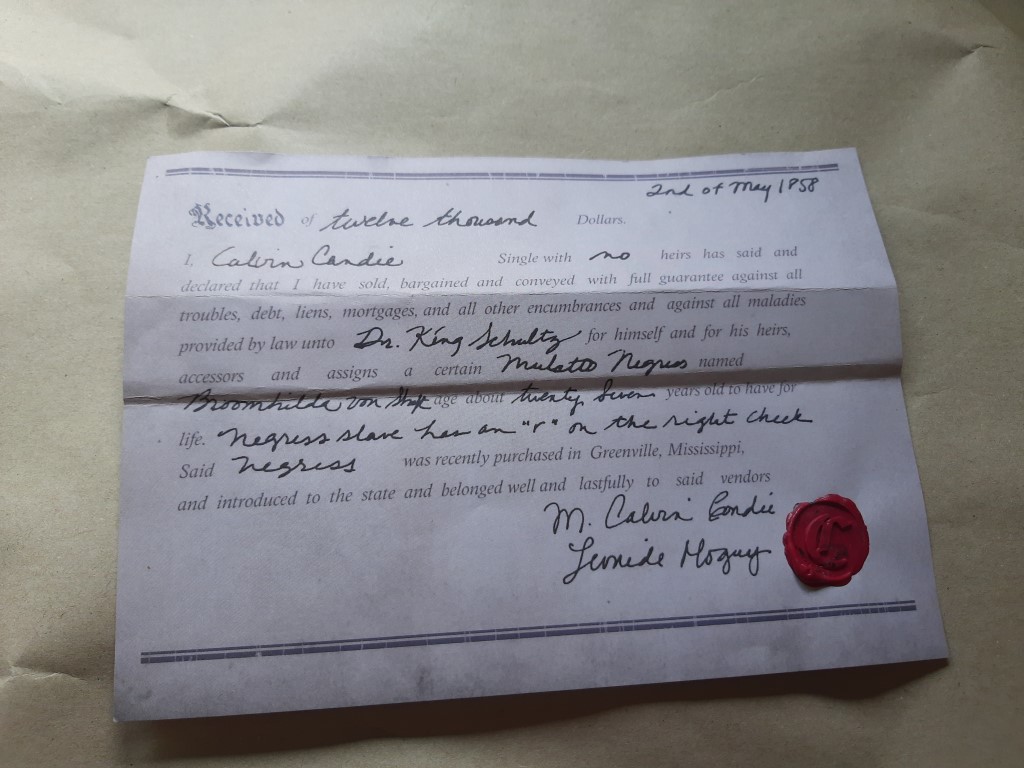 2nd of May 1858
Received of twelve thousand Dollars.
I, Calvin Candie Single with no heirs has said and
declared that I have sold, bargained and conveyed with full guarantee against all
troubles, debt, liens, mortgages, and all other encumbrances and against all maladies
provided by law unto Dr. King Schultz for himself and for his heirs,
accessors and assigns a certain Mulatto Negress named
Broomhilda von age about twenty Seven years old to have for
life. Negress slave has an "r" on the right cheek
Said negress was recently purchased in Greenville, Mississippi,
and introduced to the state and belonged well and lastfully to said vendors
M. Calvin Candie
Leonide Moguy
C